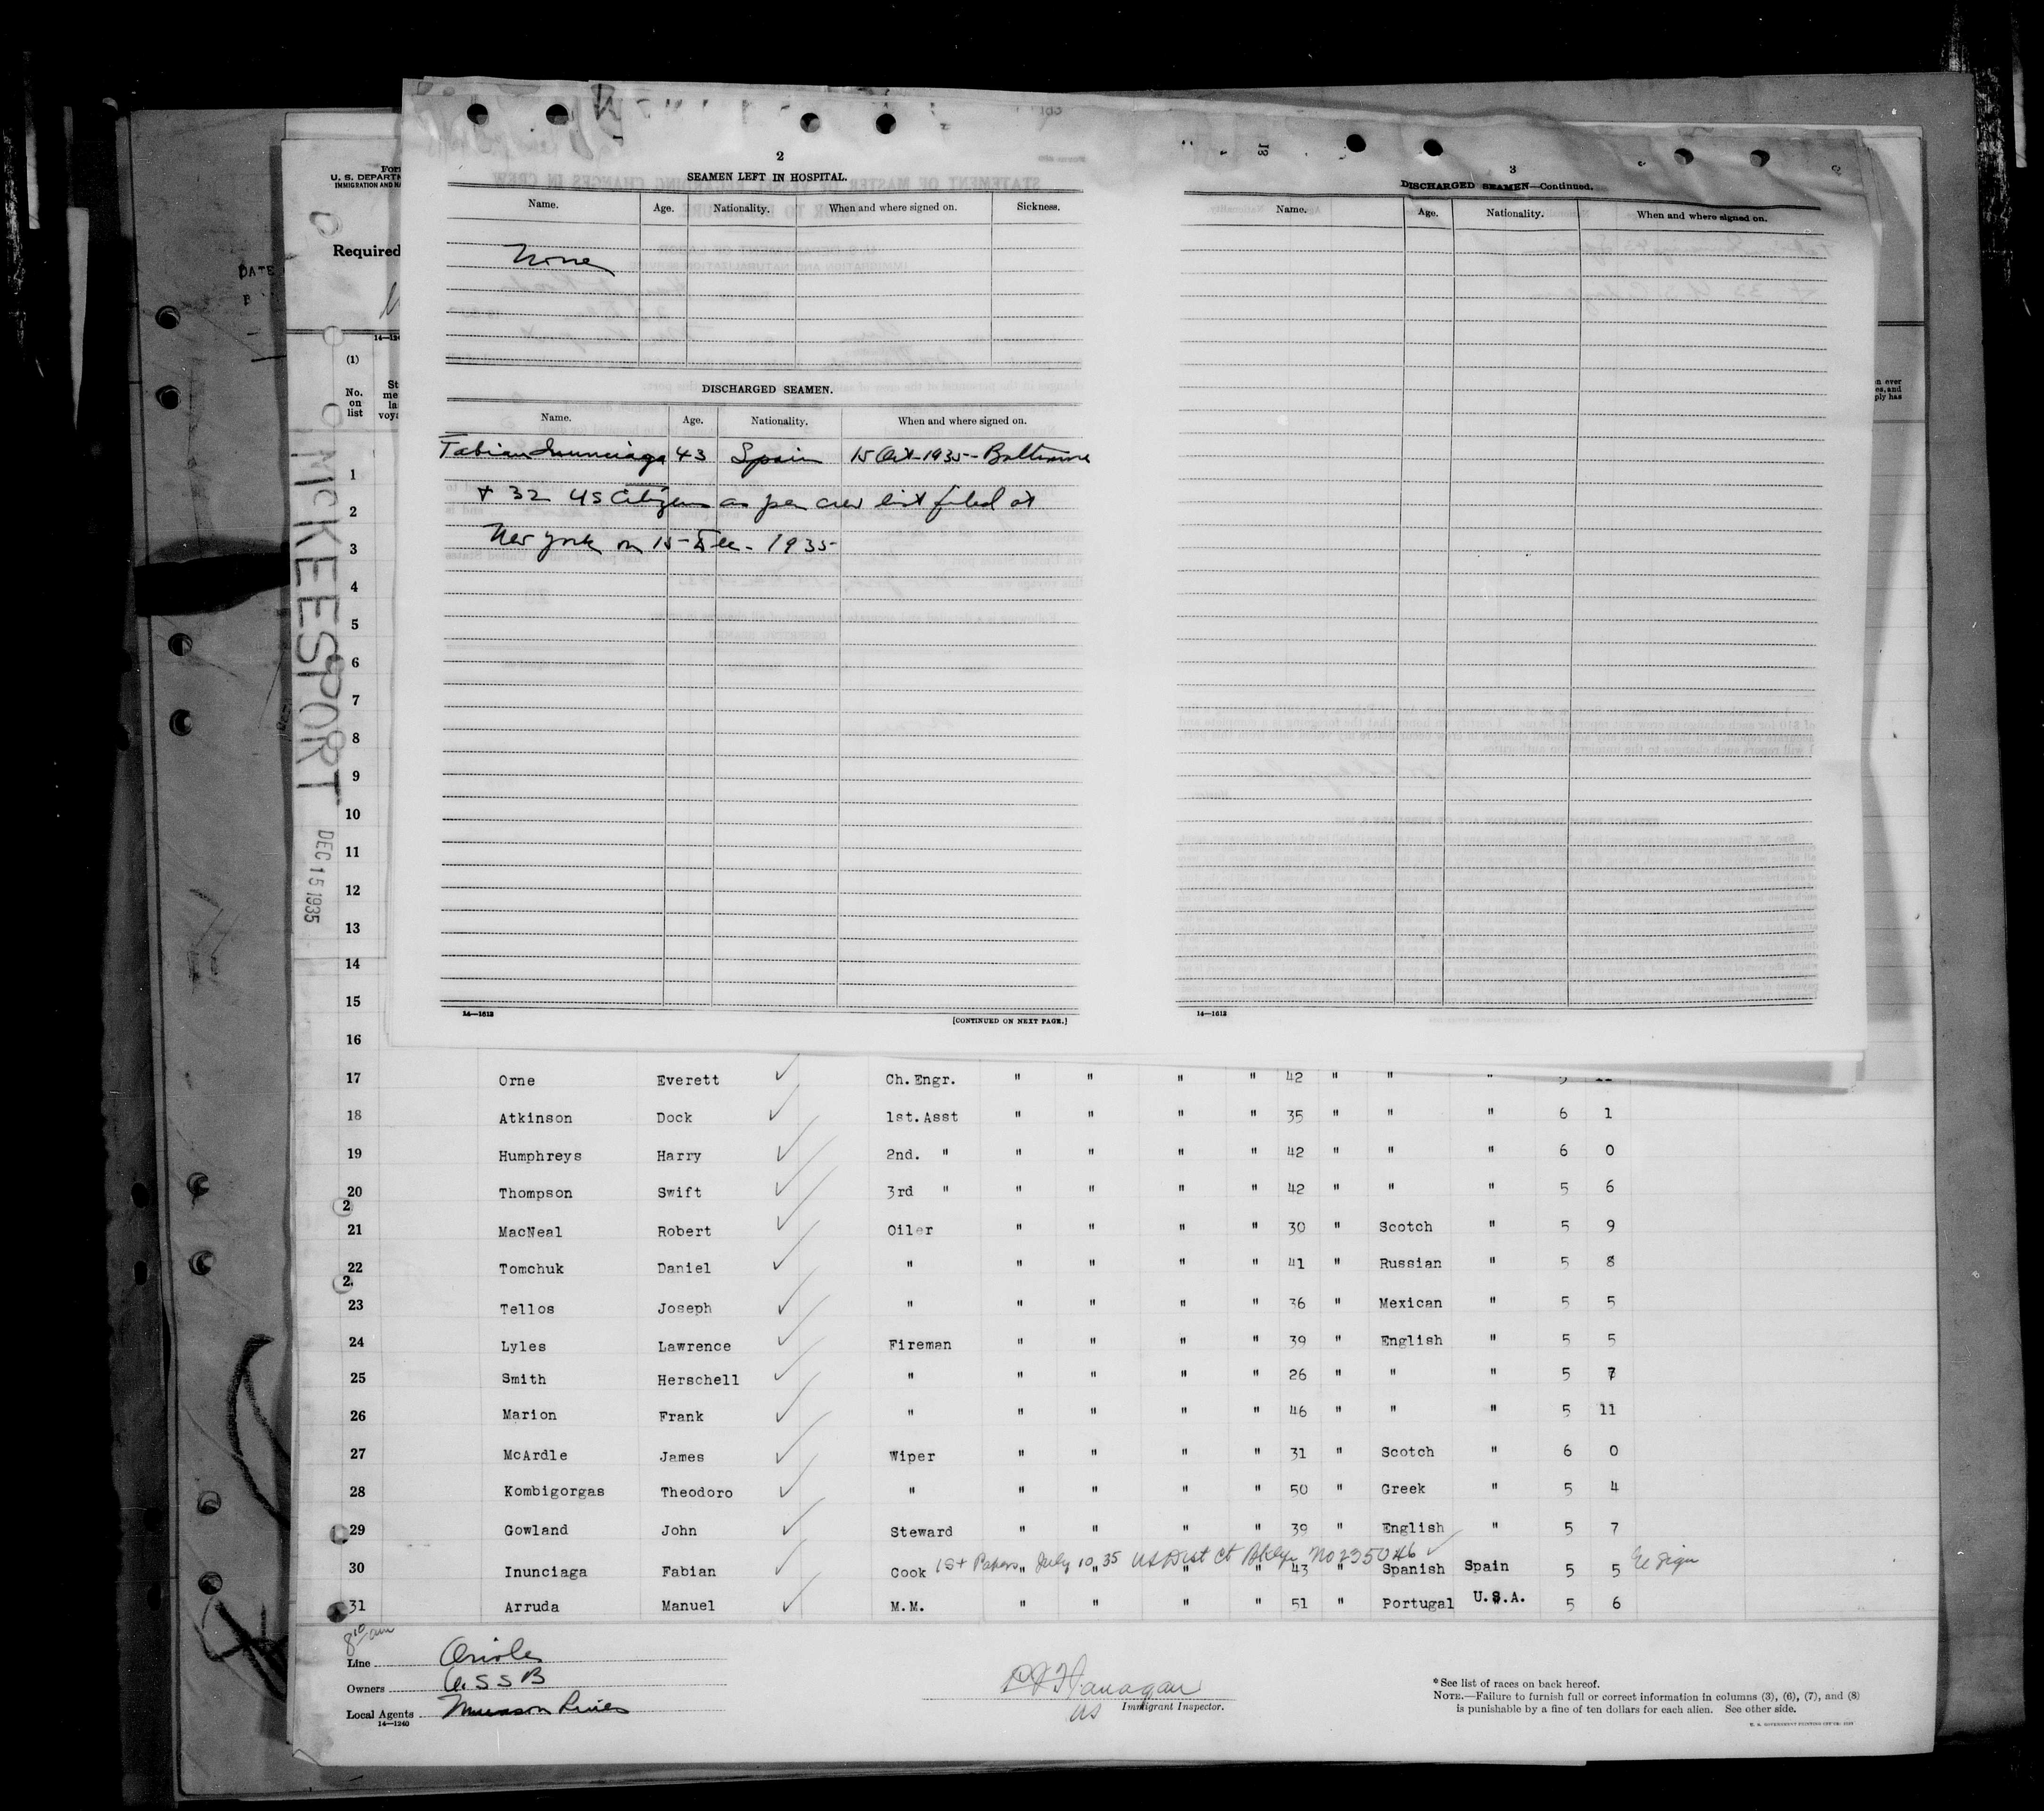 2
SEAMEN LEFT IN HOSPITAL.
Name. Age. Nationality. When and where signed on. Sickness.
None
DISCHARGED SEAMEN.
Name. Age. Nationality. When and where signed on.
Fabian Inunciaga 43 Spain 15 Oct-1935- Baltimore
+ 32 US Citizens as per crew list filed at
New York on 15-Dec-1935-
14—1613
[CONTINUED ON NEXT PAGE.]
3
DISCHARGED SEAMEN—Continued.
Name. Age. Nationality. When and where signed on.
14—1613
Form
U. S. DEPARTM
IMMIGRATION AND NA
Required
DATE
14—124
(1)
No. on list
McKEESPORT
DEC 15 1935
1
2
3
4
5
6
7
8
9
10
11
12
13
14
15
16
17 Orne Everett Ch. Engr. " " " " 42 " " "
18 Atkinson Dock 1st. Asst " " " " 35 " " " 6 1
19 Humphreys Harry 2nd. " " " " " 42 " " " 6 0
20 Thompson Swift 3rd " " " " " 42 " " " 5 6
2
21 MacNeal Robert Oiler " " " " 30 " Scotch " 5 9
22 Tomchuk Daniel " " " " " 41 " Russian " 5 8
2
23 Tellos Joseph " " " " " 36 " Mexican " 5 5
24 Lyles Lawrence Fireman " " " " 39 " English " 5 5
25 Smith Herschell " " " " " 26 " " " 5 7
26 Marion Frank " " " " " 46 " " " 5 11
27 McArdle James Wiper " " " " 31 " Scotch " 6 0
28 Kombigorgas Theodoro " " " " " 50 " Greek " 5 4
29 Gowland John Steward " " " " 39 " English " 5 7
1st Papers July 10, 35 US Dist Ct Bklyn No 235046
30 Inunciaga Fabian Cook " " " " 43 " Spanish Spain 5 5
31 Arruda Manuel M.M. " " " " 51 " Portugal U.S.A. 5 6
8 10 am
Line Oriole
Owners U.S S B
Local Agents Munson Line
14—1240
Immigrant Inspector.
US
* See list of races on back hereof.
NOTE.—Failure to furnish full or correct information in columns (3), (6), (7), and (8)
is punishable by a fine of ten dollars for each alien. See other side.